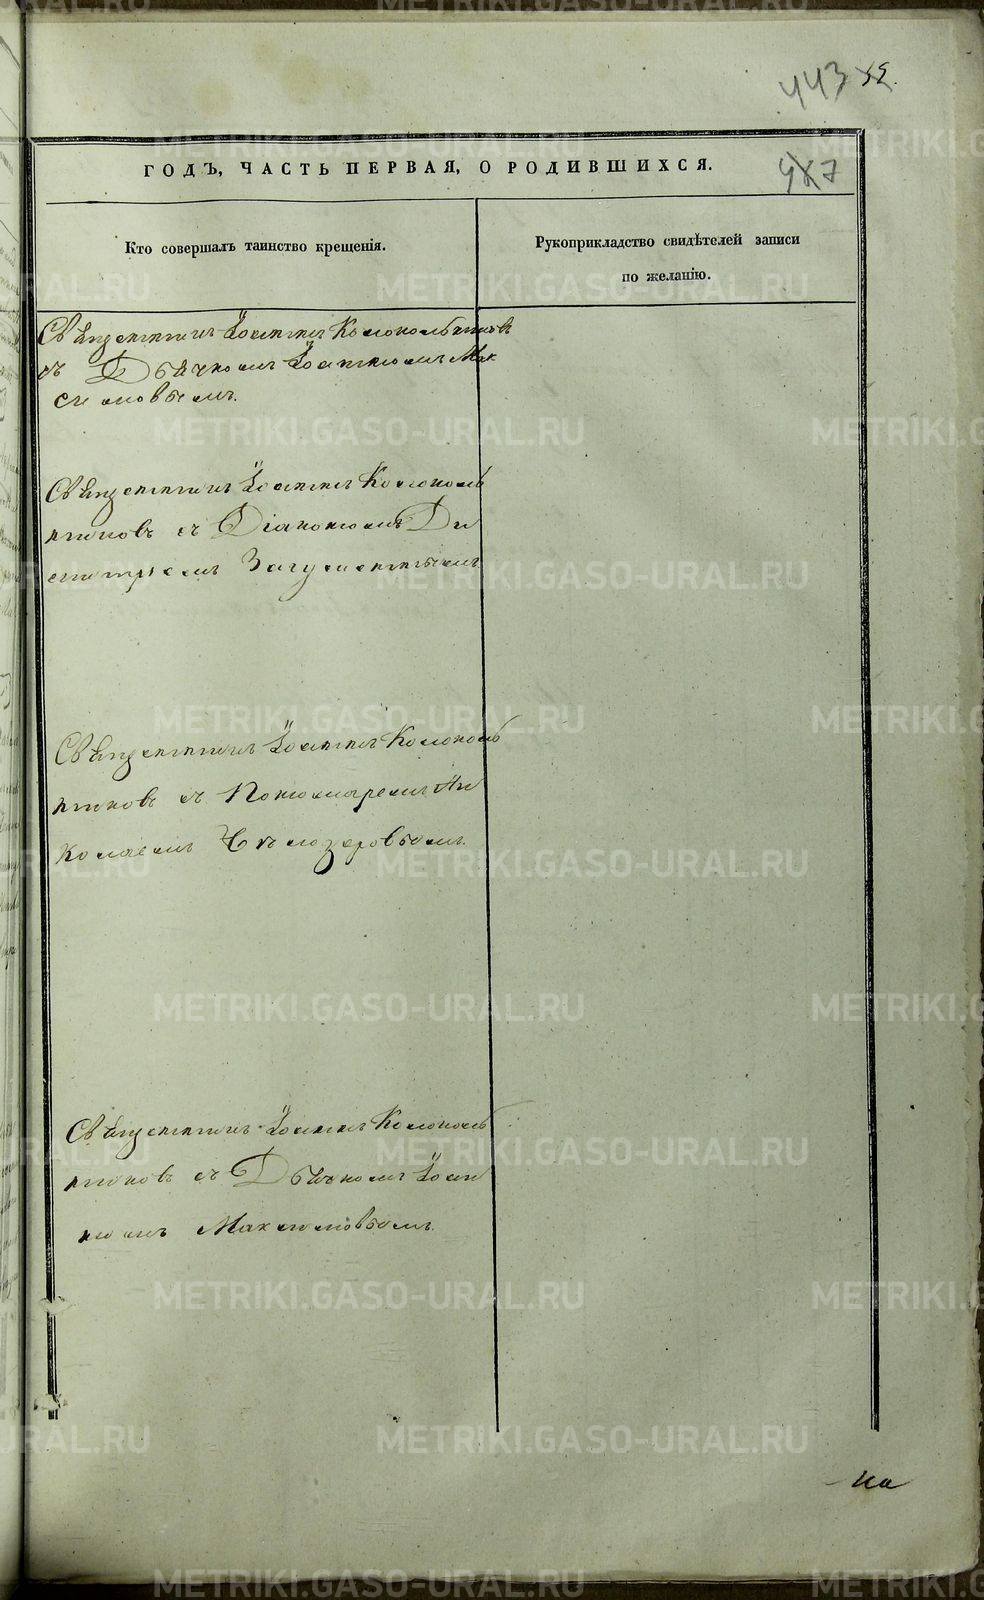 443 52.
ГОДЪ, ЧАСТЬ ПЕРВАЯ, О РОДИВШИХСЯ.
Кто совершалъ таинство крещенія.
Рукоприкладство свидѣтелей записи
по желанію.
Священникъ Іоаннъ Колокольниковъ
съ Дьячкомъ Іоанномъ Мак
симовымъ.
Священникъ Іоаннъ Колоколь
никовъ съ Діакономъ Ди
митріемъ
Священникъ Іоаннъ Колоколь
никовъ съ Пономаремъ Ни
колаемъ Бѣлозеровымъ.
Священникъ Іоаннъ Колоколь
никовъ съ Дьячкомъ Іоан
номъ Максимовымъ.
METRIKI.GASO-URAL.RU